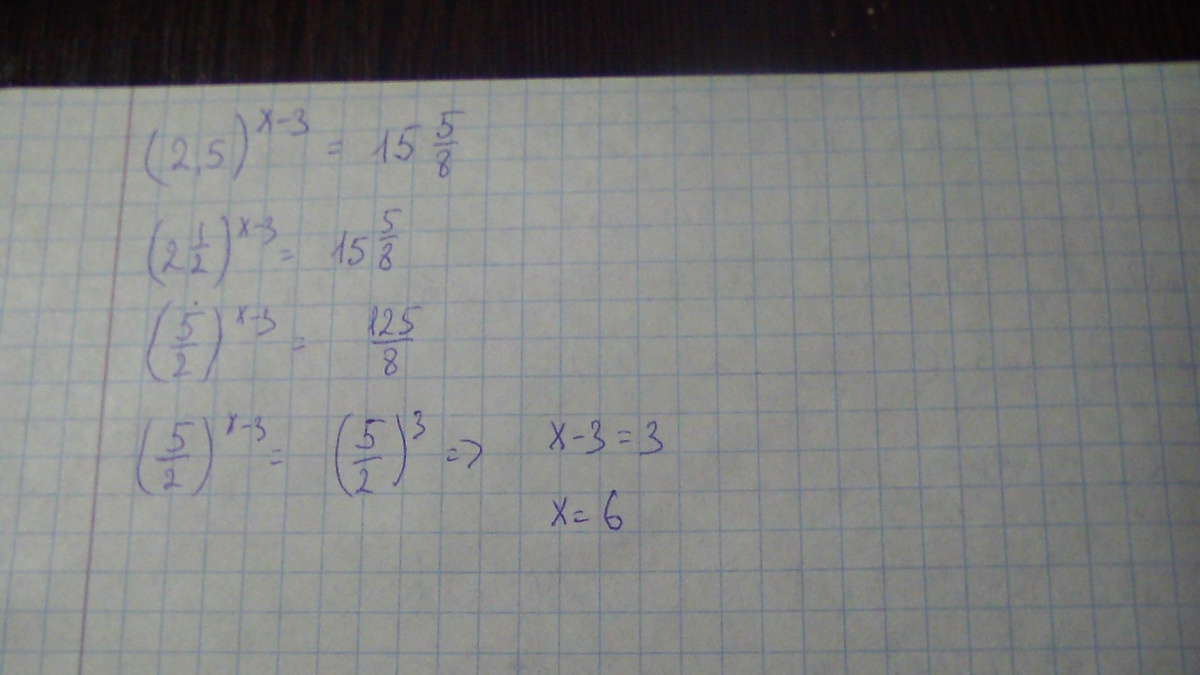 (2,5)^{x-3} = 15 5/8
(2 1/2)^{x-3} = 15 5/8
(5/2)^{x-3} = 125/8
(5/2)^{x-3} = (5/2)^3 => x-3=3
x=6